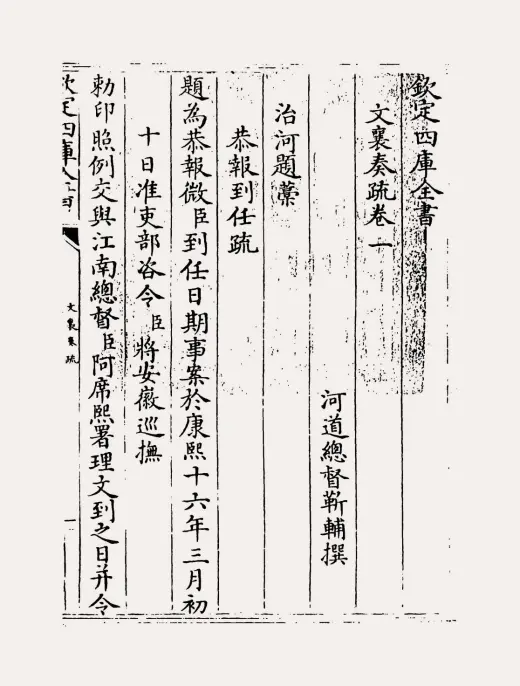 欽定四庫全書
文襄奏疏卷一
河道總督靳輔撰
治河題藁
恭報到任疏
題為恭報微臣到任日期事案於康熙十六年三月初
十日准吏部咨令臣將安徽巡撫
勅印照例交與江南總督臣阿席熙署理文到之日并令
欽定四庫全書
文襄奏疏
一